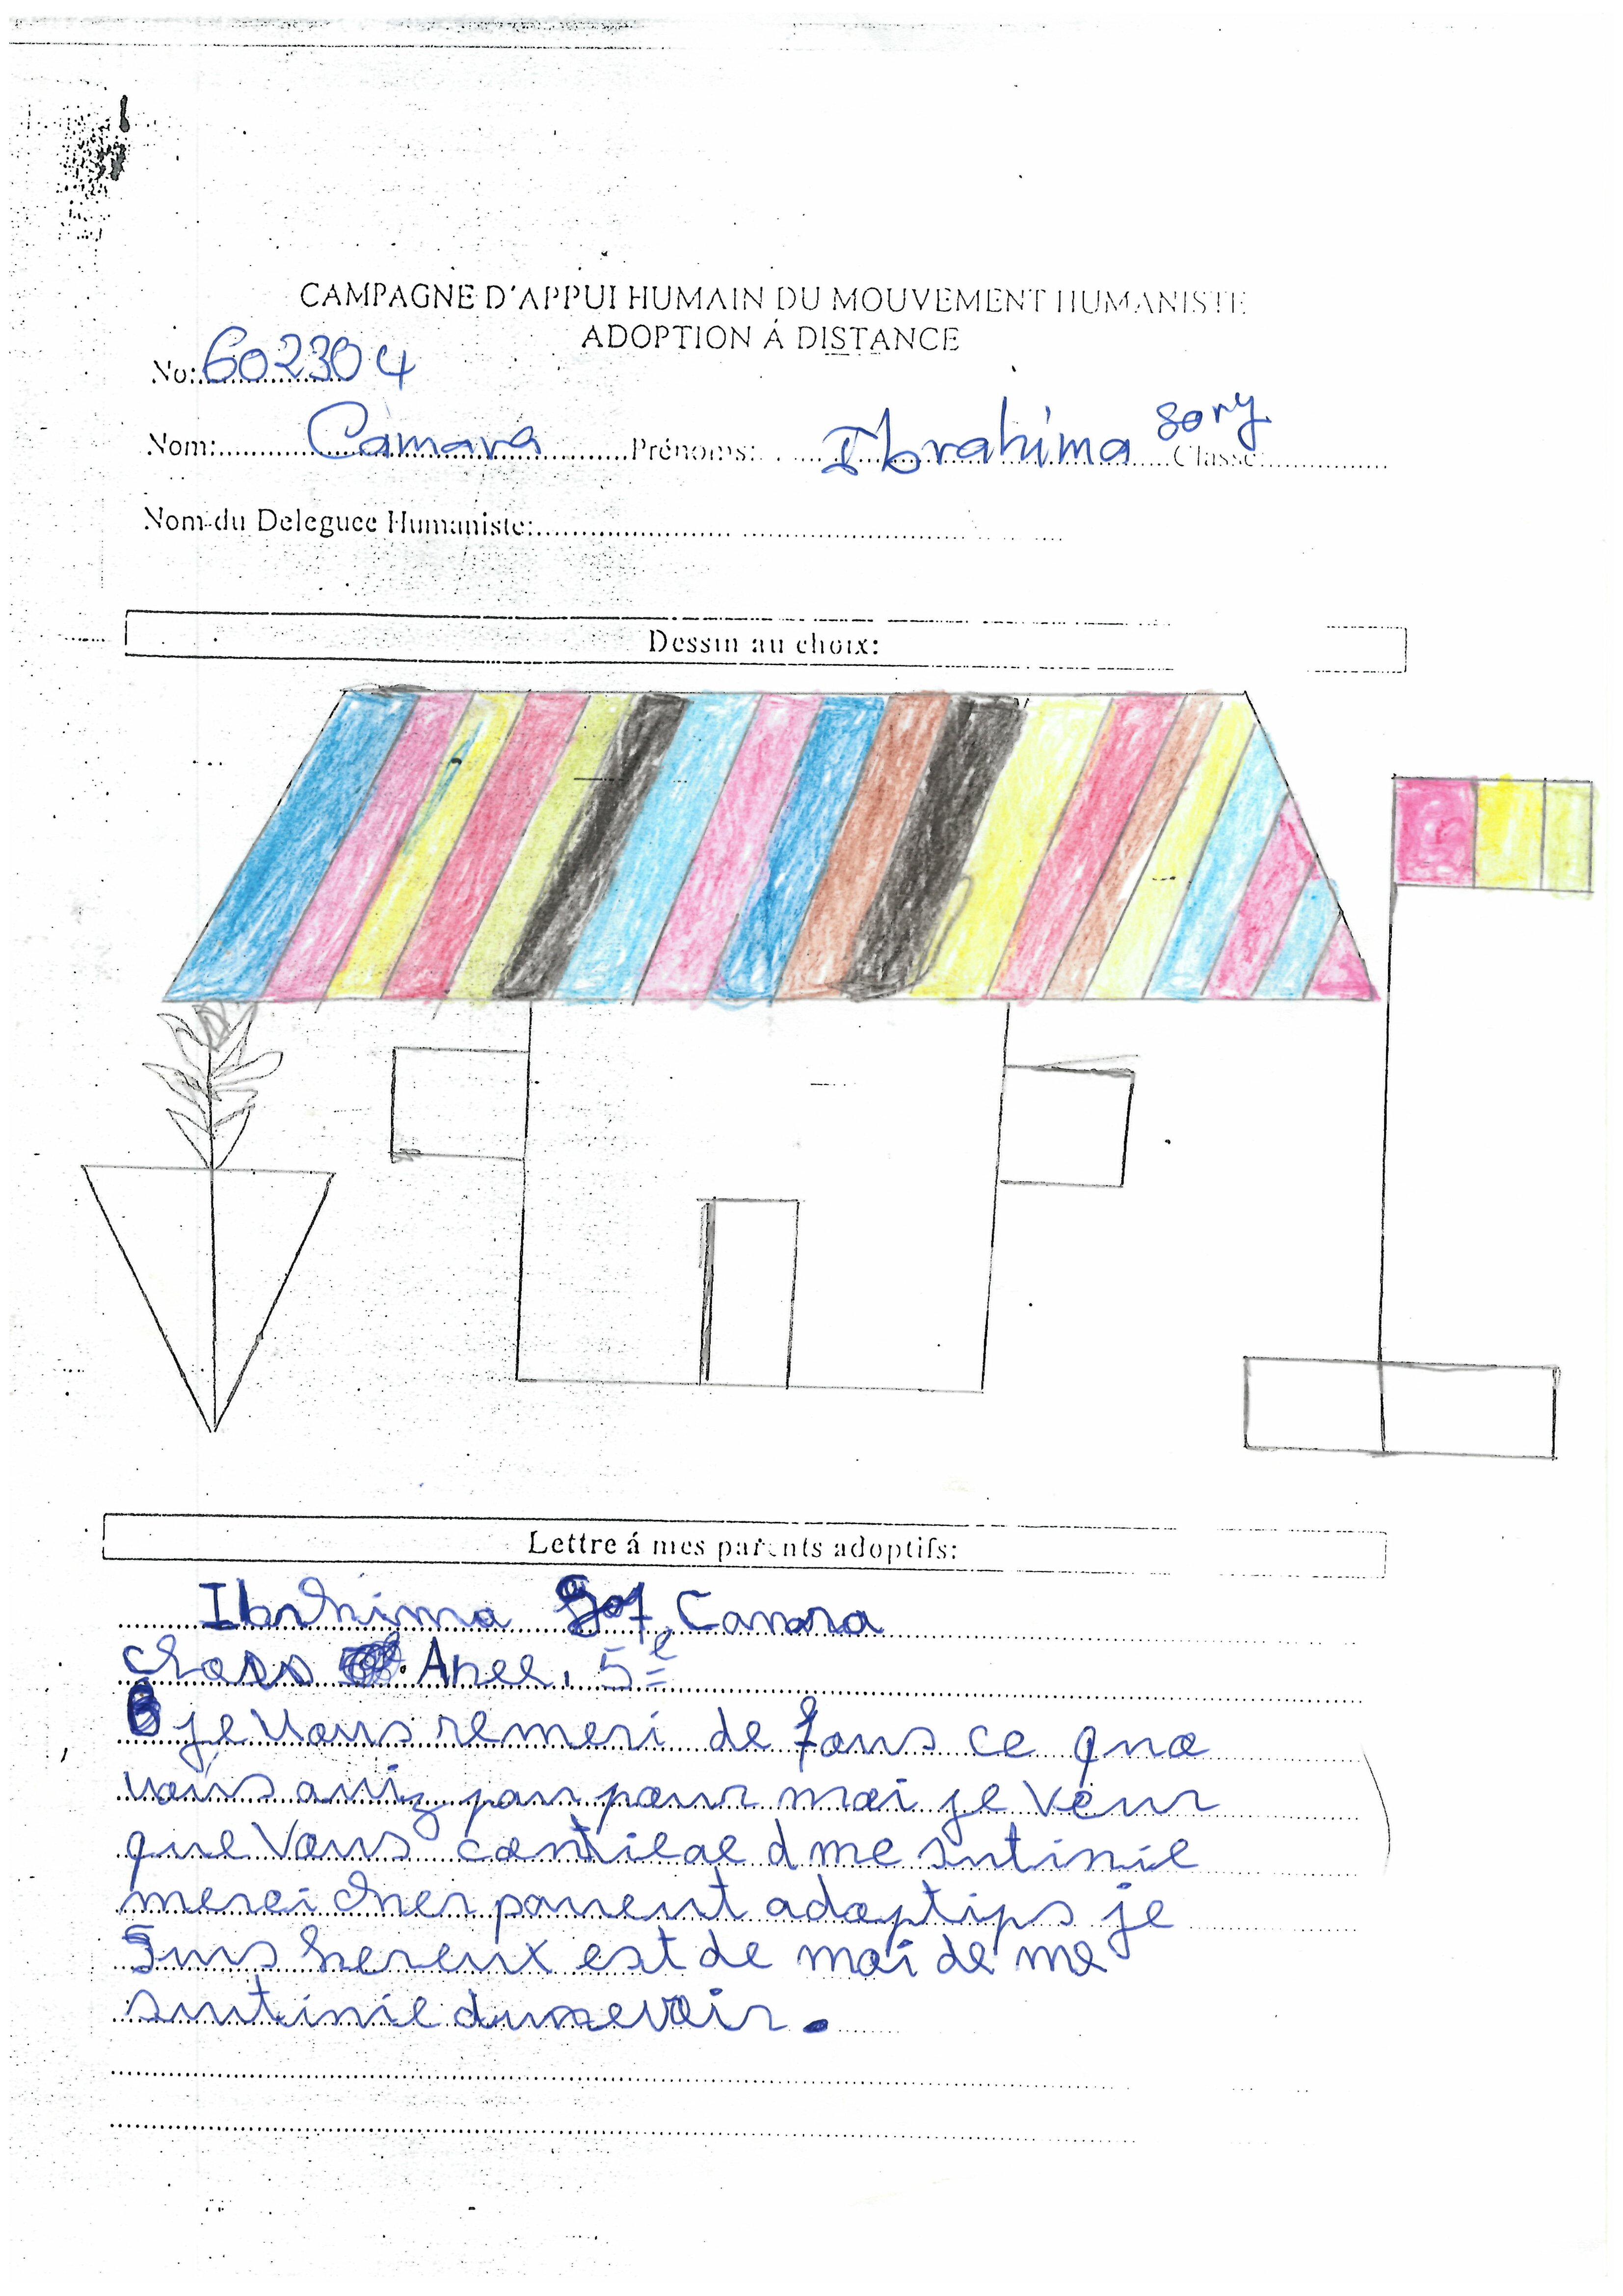 CAMPAGNE D'APPUI HUMAIN DU MOUVEMENT HUMANISTE
ADOPTION Á DISTANCE
No: 602304
Nom: Camara Prénoms: Ibrahima Sory Classe:
Nom du Deleguee Humaniste:
Dessin au choix:
Lettre á mes parents adoptifs:
Ibrahima Camara
Class Anee. 5e
je vous remeri de tous ce que
vous aviz pour moi je veur
que vous d me sutinie
merci cher parent adoptips je
Suis hereux est de moi de me
sutinie